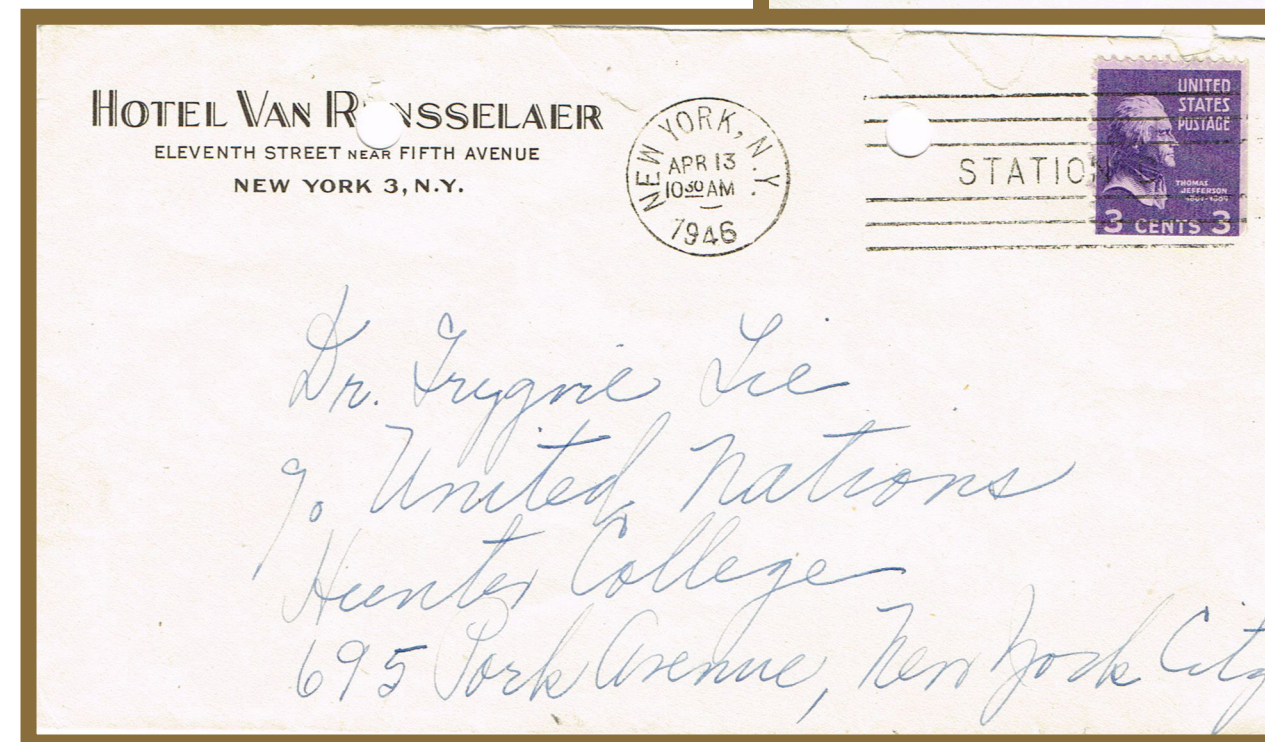 HOTEL VAN RENSSELAER
ELEVENTH STREET NEAR FIFTH AVENUE
NEW YORK 3, N.Y.
NEW YORK, N.Y.
APR 13
10 30 AM
1946
STATION
UNITED
STATES
POSTAGE
THOMAS
JEFFERSON
3 CENTS 3
Dr. Trygvie Lie
% United Nations
Hunter College
695 Park Avenue, New York City